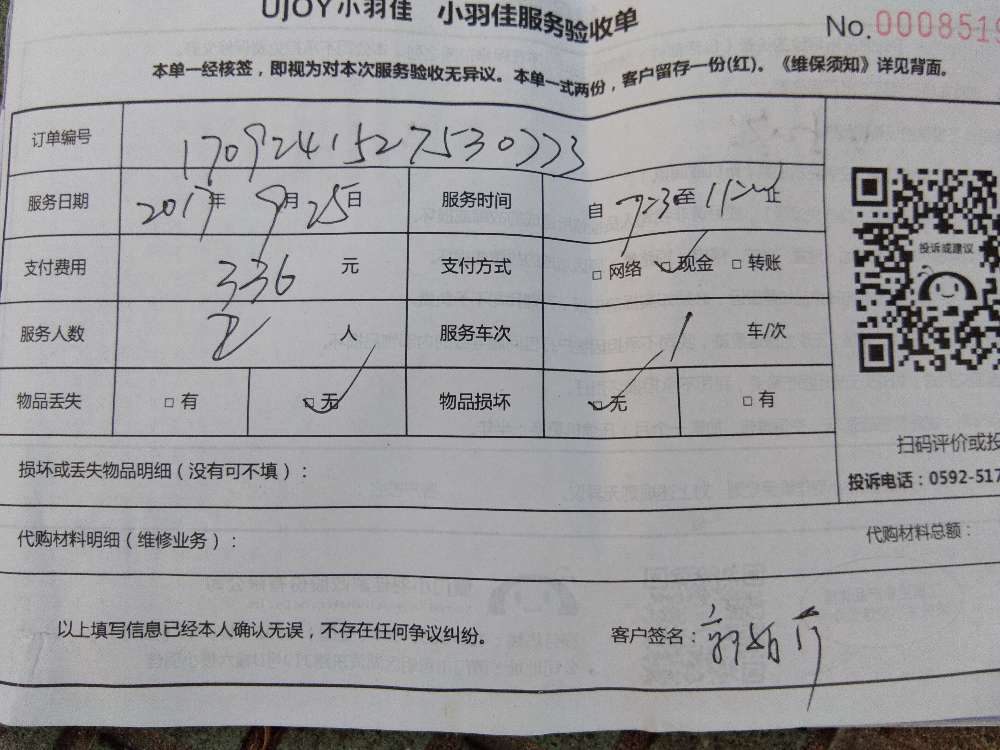 UJOY小羽佳 小羽佳服务验收单
No. 0008519
本单一经核签，即视为对本次服务验收无异议。本单一式两份，客户留存一份(红)。《维保须知》详见背面。
订单编号 1709241527530333
服务日期 2017年 9月 25日 服务时间 自 至 止
支付费用 336 元 支付方式 □ 网络 □ 现金 □ 转账
服务人数 2 人 服务车次 1 车/次
物品丢失 □ 有 □ 无 物品损坏 □ 无 □ 有
投诉或建议
扫码评价或投
投诉电话：0592-517
损坏或丢失物品明细（没有可不填）：
代购材料明细（维修业务）：
代购材料总额：
以上填写信息已经本人确认无误，不存在任何争议纠纷。
客户签名：